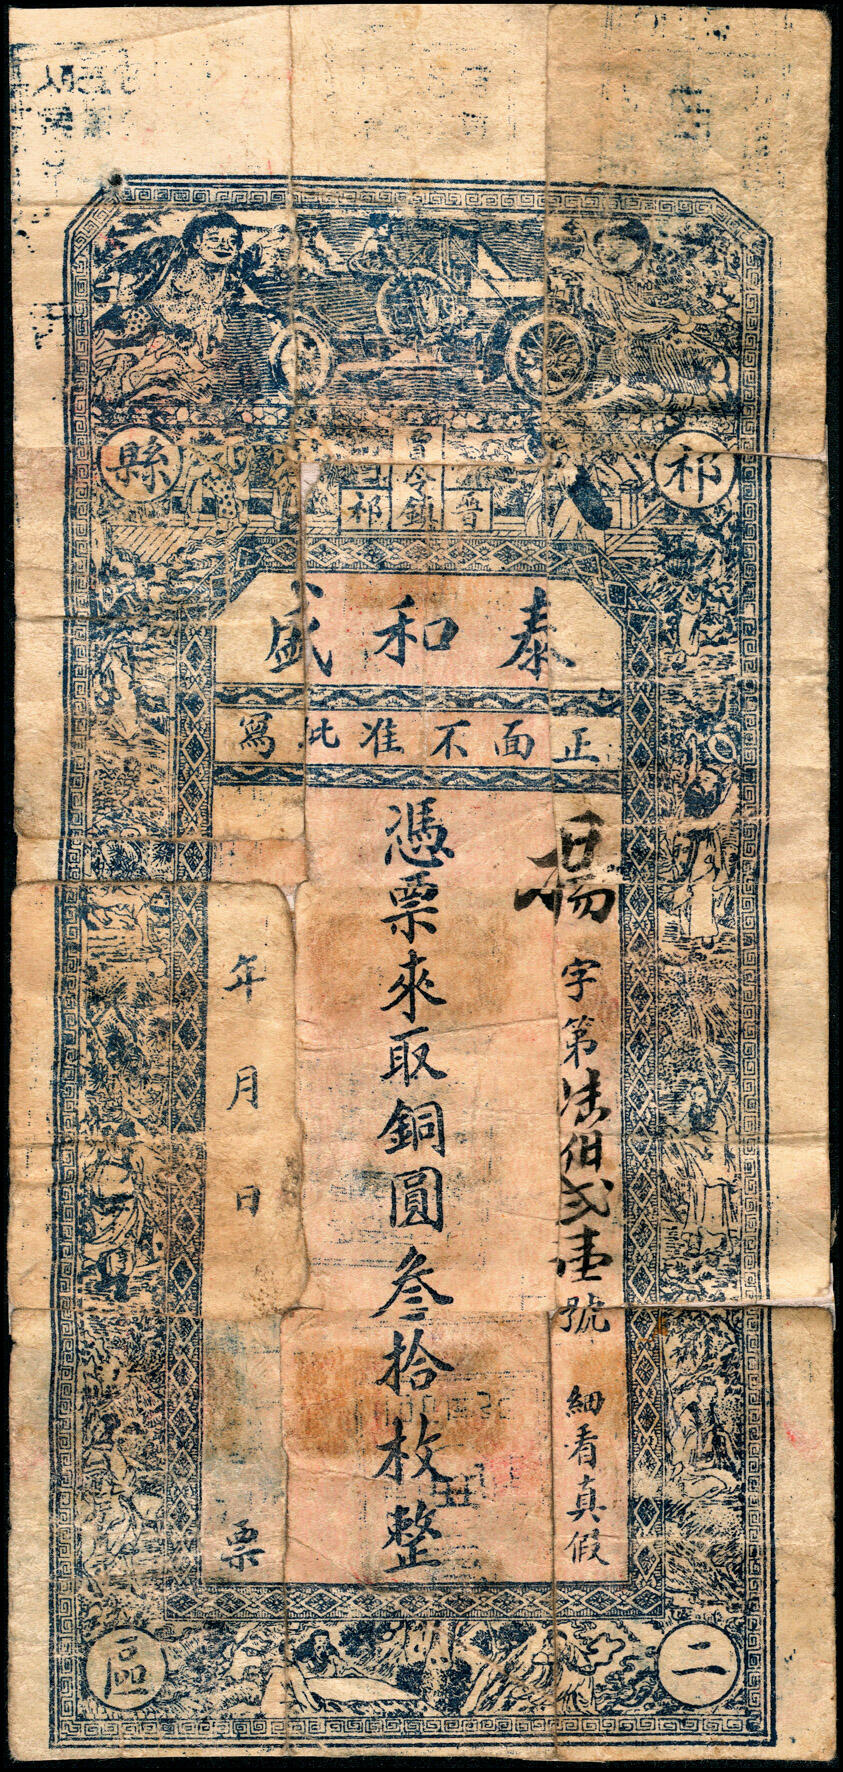 祁縣
晋祁
賈令鎮
泰和盛
正面不准批寫
楊字第陸佰弍壹號 細看真假
憑票來取銅圓叁拾枚整
年月日 票
二區